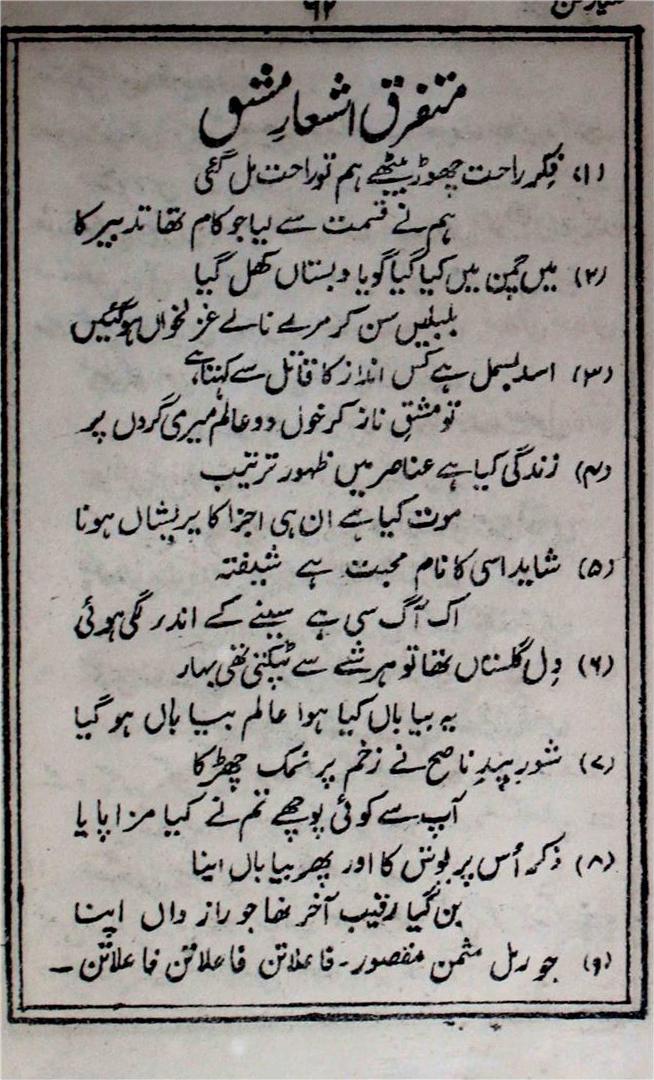 ۶۲
متفرق اشعارِ مشق
(۱) فکر راحت چھوڑ بیٹھے ہم تو راحت مل گئی
ہم نے قسمت سے لیا جو کام تھا تدبیر کا
(۲) میں چمن میں کیا گیا گویا دبستاں کھل گیا
بلبلیں سن کر مرے نالے غزلخواں ہوگئیں
(۳) اسد بسمل ہے کس انداز کا قاتل سے کہتا ہے
تو مشقِ ناز کر خوں دو عالم میری گردن پر
(۴) زندگی کیا ہے عناصر میں ظہور ترتیب
موت کیا ہے ان ہی اجزا کا پریشاں ہونا
(۵) شاید اسی کا نام محبت ہے شیفتہ
اک آگ سی ہے سینے کے اندر لگی ہوئی
(۶) دِل گلستاں تھا تو ہر شے سے ٹپکتی تھی بہار
یہ بیاباں کیا ہوا عالم بیاباں ہو گیا
(۷) شورِ پندِ ناصح نے زخم پر نمک چھڑکا
آپ سے کوئی پوچھے تم نے کیا مزا پایا
(۸) ذکر اُس پری وش کا اور پھر بیاں اپنا
بن گیا رقیب آخر تھا جو رازداں اپنا
(۹) جو رمل مثمن مقصور۔ فاعلاتن فاعلاتن فاعلاتن ۔